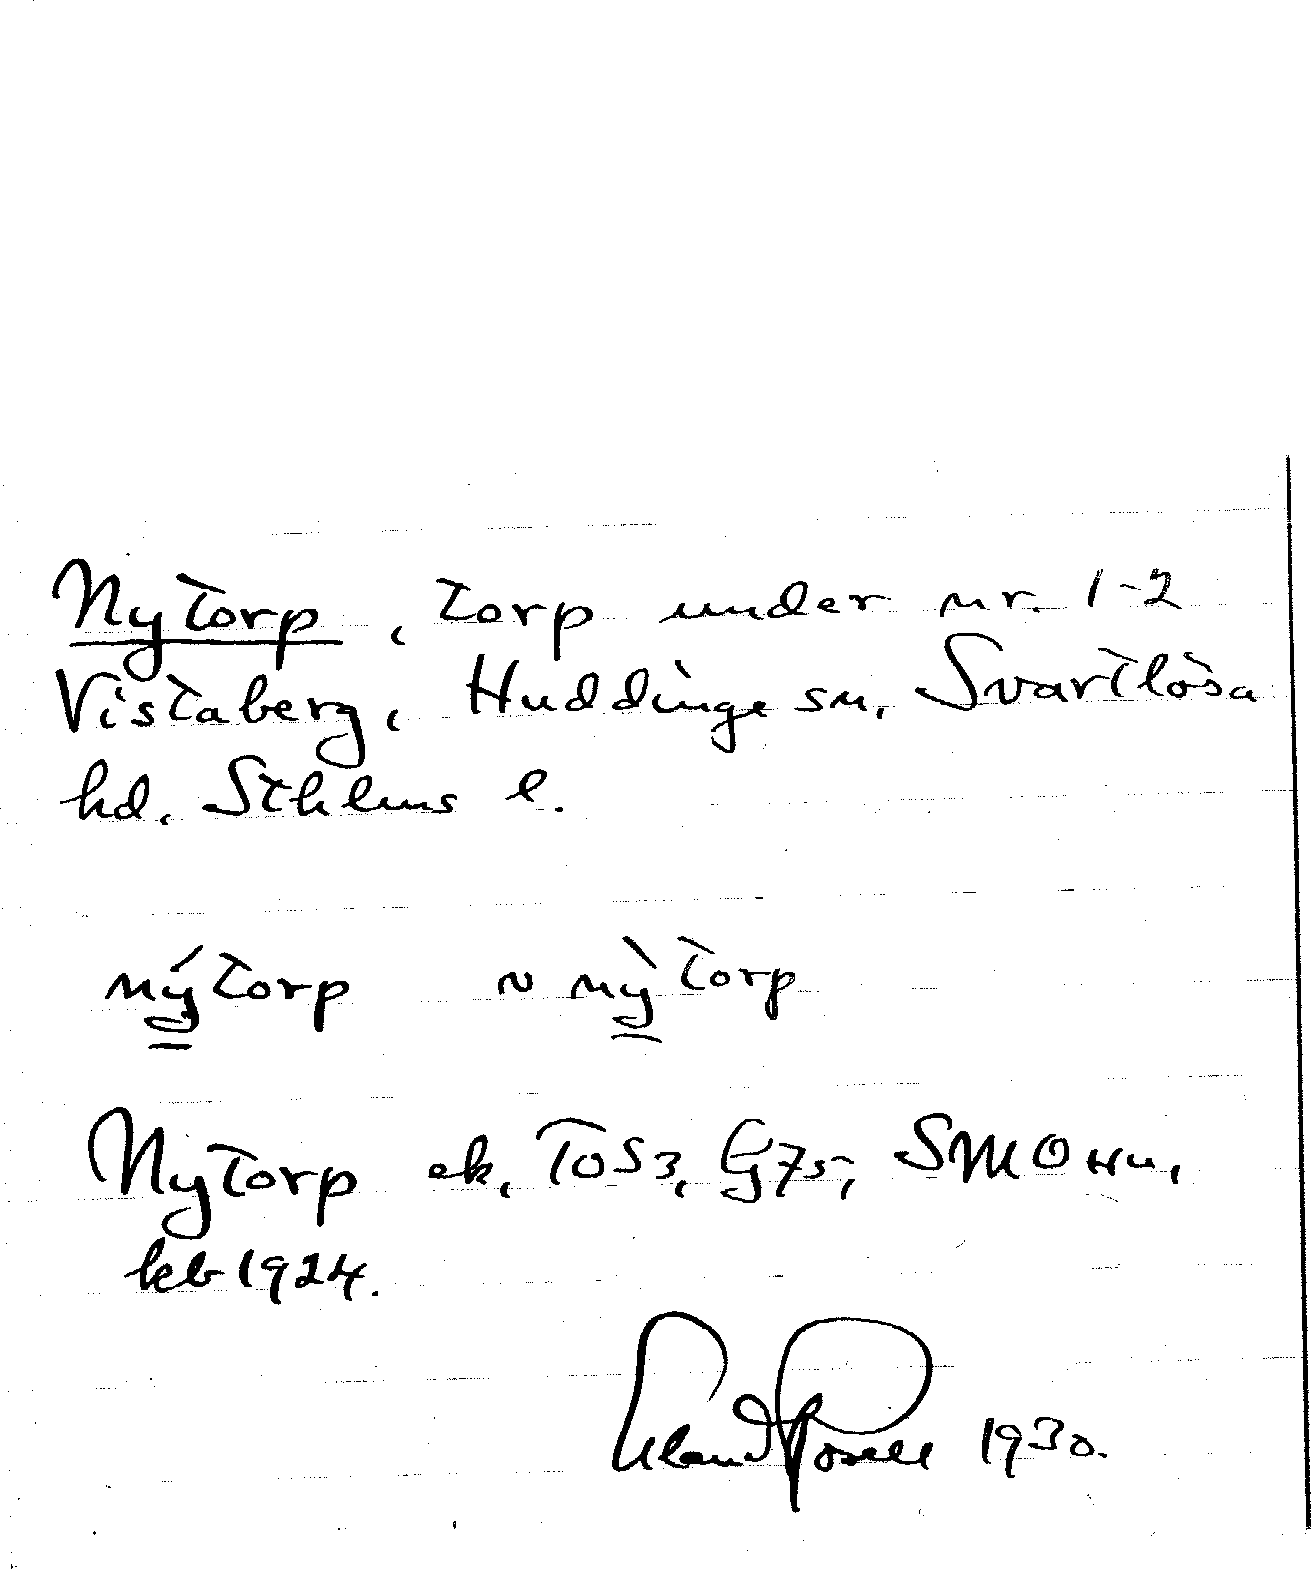 Nytorp, torp under nr. 1-2
Vistaberg, Huddinge sn, Svartlösa
hd, Sthlms l.
nýtorp ~ nỳtorp
Nytorp ek, TOS3, G75, SMOHu,
kb 1924.
Erland Rosell 1930.